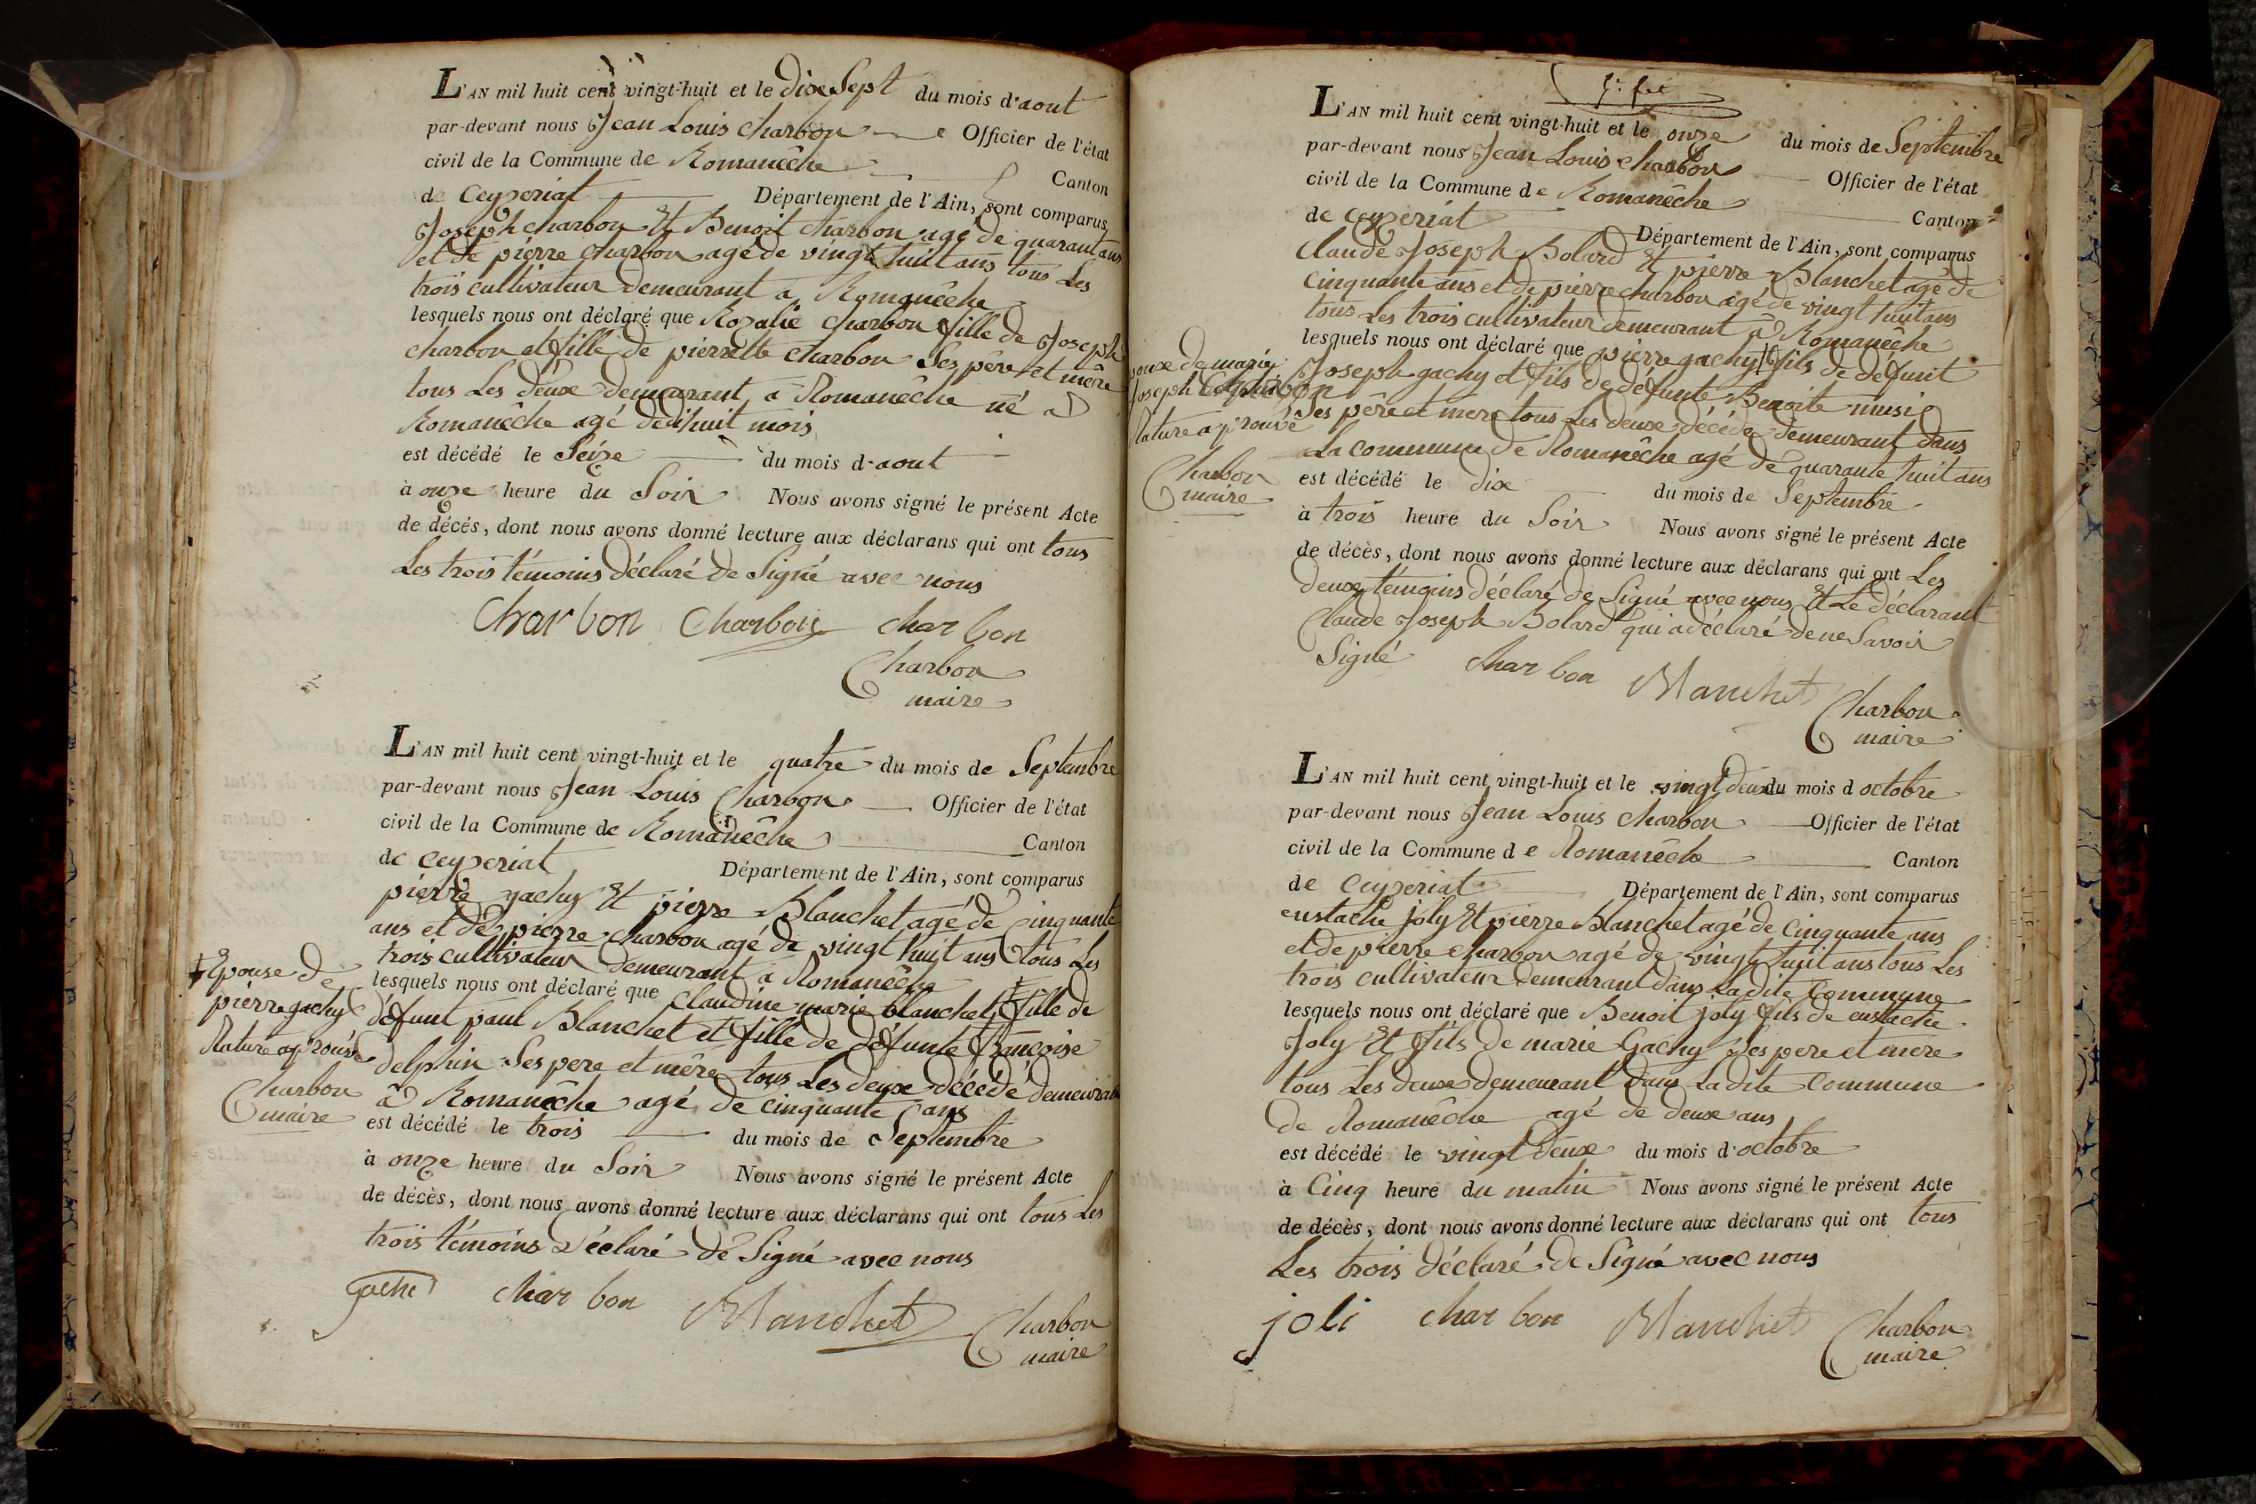 L'AN mil huit cent vingt-huit et le dixSept du mois d'aout
par-devant nous Jean Louis charbon Officier de l'état
civil de la Commune de Romanêche Canton
de Ceyzeriat Département de l'Ain, sont comparus
Joseph charbon Et Benoit charbon agé de quarant ans
et de pierre charbon agé de vingt huit ans tous Les
trois cultivateur demeurant a Romanêche
lesquels nous ont déclaré que Rozalie charbon fille de Joseph
charbon et fille de pierrette charbon Ses père et mêre
tous Les deux demeurant a Romanêche né a
Romanêche agé dedihuit mois
est décédé le Seize du mois d'aout
à onze heure du Soir Nous avons signé le présent Acte
de décés, dont nous avons donné lecture aux déclarans qui ont tous
Les trois témoins déclaré de Signé avec nous
Charbon Charbon char bon
Charbon
maire
L'AN mil huit cent vingt-huit et le quatre du mois de Septembre
par-devant nous Jean Louis Charbon Officier de l'état
civil de la Commune de Romanêche Canton
de Ceyzeriat Département de l'Ain, sont comparus
pierre gachy Et pierre Blanchet agé de Cinquante
ans et de pierre charbon agé de vingt huit ans tous Les
trois cultivateur demeurant a Romanêche
lesquels nous ont déclaré que Claudine marie blanchet fille de
défunt paul Blanchet et fille de défunte françoise
delphin Ses pere et mêre tous Les deux décédé demeurant
a Romanêche agé de cinquante ans
est décédé le trois du mois de Septembre
à onze heure du Soir Nous avons signé le présent Acte
de décès, dont nous avons donné lecture aux déclarans qui ont tous Les
trois témoins déclaré de Signé avec nous
Epouse de
pierre gachy
Rature aprouvé
Charbon
maire
gache char bon Blanchet Charbon
maire
L'AN mil huit cent vingt-huit et le onze du mois de Septembre
par-devant nous Jean Louis charbon Officier de l'état
civil de la Commune de Romanêche Canton
de Ceyzeriat Département de l'Ain, sont comparus
Claude Joseph Bolard Et pierre Blanchet agé de
Cinquante ans et de pierre charbon agé de vingt huit ans
tous Les trois cultivateur demeurant a Romanêche
lesquels nous ont déclaré que pierre gachy fils de défunt
Joseph gachy et fils de défunte Benoite
Ses pêre et mere tous Les deux décédé demeurant dans
La commune de Romanêche agé de quarante huit ans
est décédé le dix du mois de Septembre
à trois heure du Soir Nous avons signé le présent Acte
de décès, dont nous avons donné lecture aux déclarans qui ont Les
deux témoins déclaré de Signé avec nous Et Le déclarant
Claude Joseph Bolard qui a déclaré de ne Savoir
Signé
de marie
Joseph
Rature aprouvé
Charbon
maire
char bon Blanchet Charbon
maire
L'AN mil huit cent vingt-huit et le vingt deux du mois d octobre
par-devant nous Jean Louis charbon Officier de l'état
civil de la Commune de Romanêche Canton
de Ceyzeriat Département de l'Ain, sont comparus
eustache joly Et pierre Blanchet agé de Cinquante ans
et de pierre charbon agé de vingt huit ans tous Les
trois cultivateur demeurant dans La dite Commune
lesquels nous ont déclaré que Benoit joly fils de eustache
Joly Et fils de marie Gachy Ses pere et mere
tous Les deux demeurant dans La dite commune
de Romanêche agé de deux ans
est décédé le vingt deux du mois d'octobre
à Cinq heure du matin Nous avons signé le présent Acte
de décès, dont nous avons donné lecture aux déclarans qui ont tous
Les trois déclaré de Signé avec nous
joli char bon Blanchet Charbon
maire